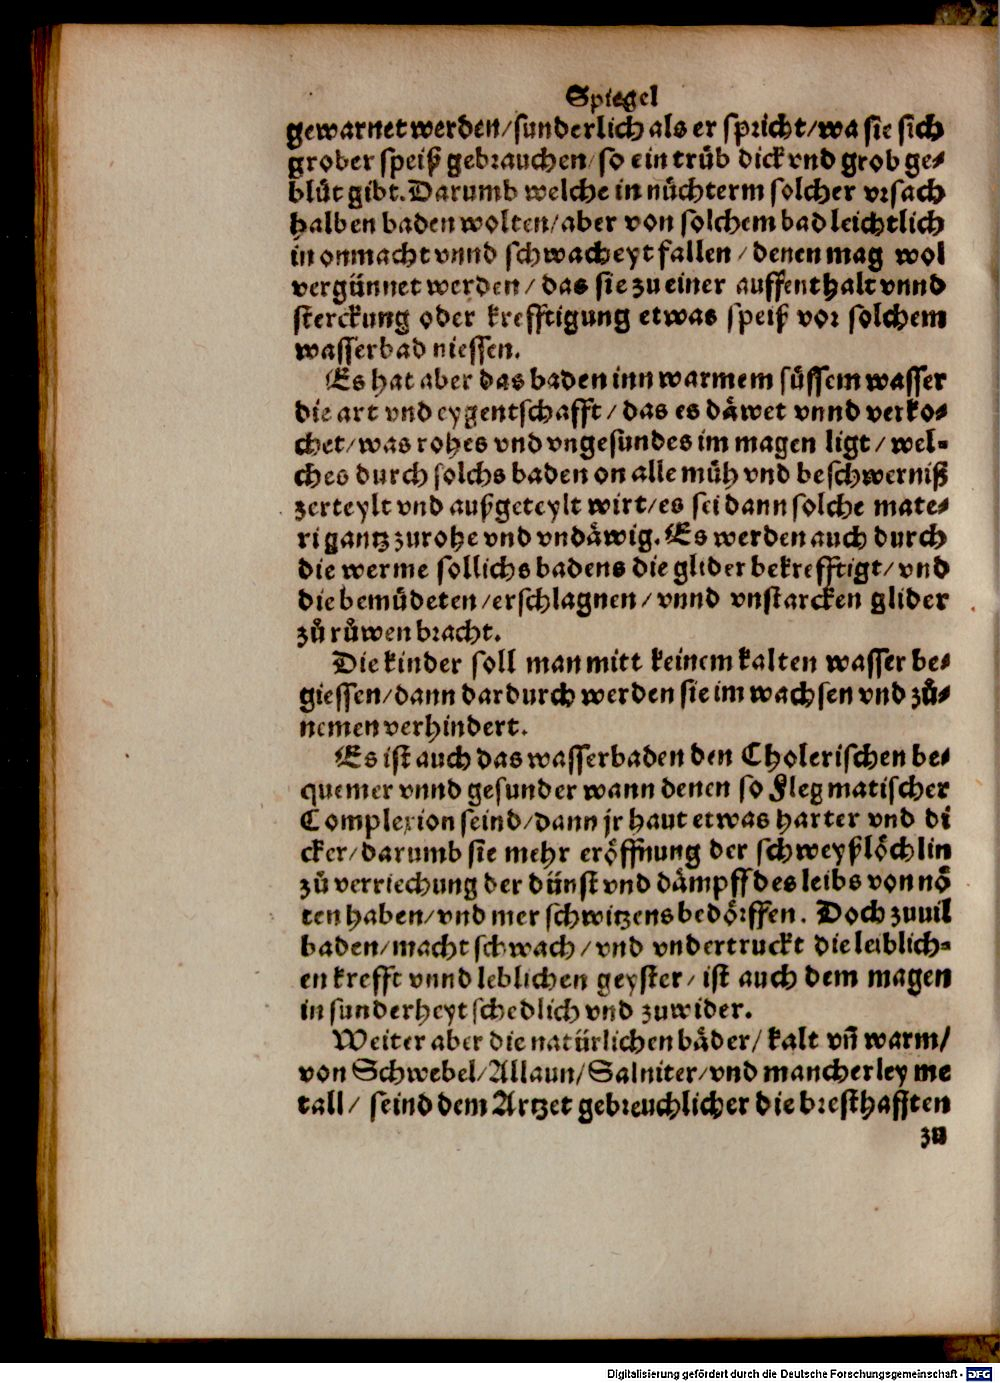 Spiegel
gewarnet werden/sunderlich als er spricht/wa sie sich
grober speiß gebrauchen/so ein trüb dick vnd grob ge-
blüt gibt. Darumb welche in nüchterm solcher vrsach
halben baden wolten/aber von solchem bad leichtlich
in onmacht vnnd schwacheyt fallen/denen mag wol
vergünnet werden/das sie zu einer auffenthalt vnnd
sterckung oder krefftigung etwas speiß vor solchem
wasserbad niessen.
Es hat aber das baden inn warmem süssem wasser
die art vnd eygentschafft/das es däwet vnnd verko-
chet/was rohes vnd vngesundes im magen ligt/wel-
ches durch solchs baden on alle müh vnd beschwerniß
zerteylt vnd außgeteylt wirt/es sei dann solche mate-
ri gantz zu rohe vnd vndäwig. Es werden auch durch
die werme sollichs badens die glider bekrefftigt/vnd
die bemüdeten/erschlagnen/vnnd vnstarcken glider
zů růwen bracht.
Die kinder soll man mitt keinem kalten wasser be-
giessen/dann dardurch werden sie im wachsen vnd zů-
nemen verhindert.
Es ist auch das wasserbaden den Cholerischen be-
quemer vnnd gesunder wann denen so Flegmatischer
Complexion seind/dann jr haut etwas harter vnd di
cker/darumb sie mehr eröffnung der schweyßlöchlin
zů verriechung der dünst vnd dämpff des leibs von nö
ten haben/vnd mer schwitzens bedörffen. Doch zuuil
baden/macht schwach/vnd vndertruckt die leiblich-
en krefft vnnd leblichen geyster/ist auch dem magen
in sunderheyt schedlich vnd zuwider.
Weiter aber die natürlichen bäder/kalt vñ warm/
von Schwebel/Allaun/Salniter/vnd mancherley me
tall/seind dem Artzet gebreuchlicher die bresthafften
zu
Digitalisierung gefördert durch die Deutsche Forschungsgemeinschaft - DFG